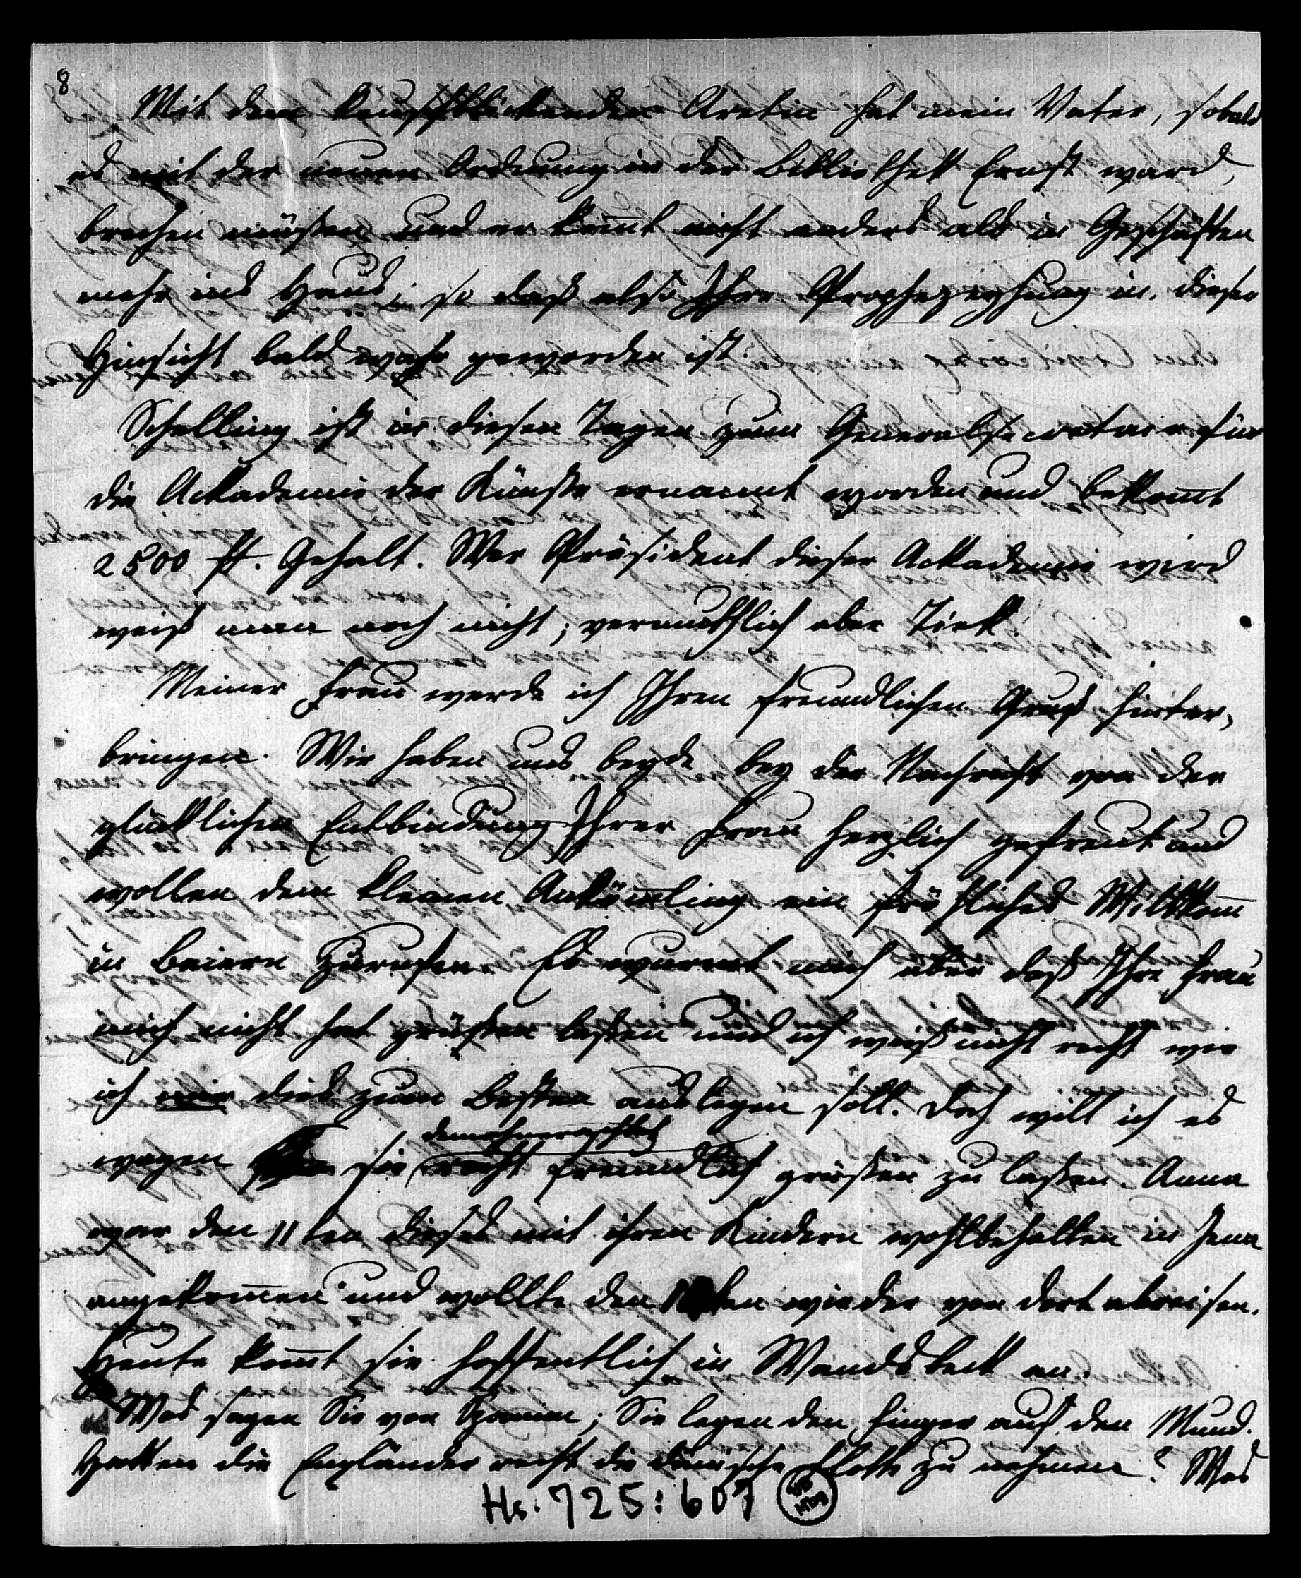 8
Mit dem Aretin hat mein Vater, sobald
es mit der neuen Ordnung in der Bibliothek Ernst ward,
brechen müßen und er kom̄t nicht anders als in Geschäften
mehr ins Haus, so daß also Ihre Prophezeyhung in dieser
Hinsicht bald wahr geworden ist.
Schelling ist in diesen Tagen zum Generalsecretair für
die Ackademie der Künste ernannt worden und bekom̄t
2500 fl. Gehalt. Wer Präsident dieser Ackademie wird
weiß man noch nicht; vermuthlich aber Tiek.
Meiner Frau werde ich Ihren freundlichen Gruß hinter-
bringen. Wir haben uns beyde bey der Nachricht von der
glücklichen Entbindung Ihrer Frau herzlich gefreut und
wollen dem kleinen Anköm̄ling ein fröhliches Willkom̄
in Baiern zurufen. Es wurmt mich aber daß Ihre Frau
mich nicht hat grüßen laßen und ich weiß nicht recht wie
ich mir dies zum Besten auslegen soll. Doch will ich es
demohngeachtet
wagen sie recht freundlich grüßen zu laßen. Anna
war den 11ten dieses mit ihren Kindern wohlbehalten in Jena
angekom̄en und wollte den ten wieder von dort abreisen.
Heute kom̄t sie hoffentlich in Wandsbeck an.
Was sagen Sie von Spanien; Sie legen den Finger auf den Mund.
Hatten die Engländer recht die dänische Flotte zu nehmen? Was
Hs. 725: 607